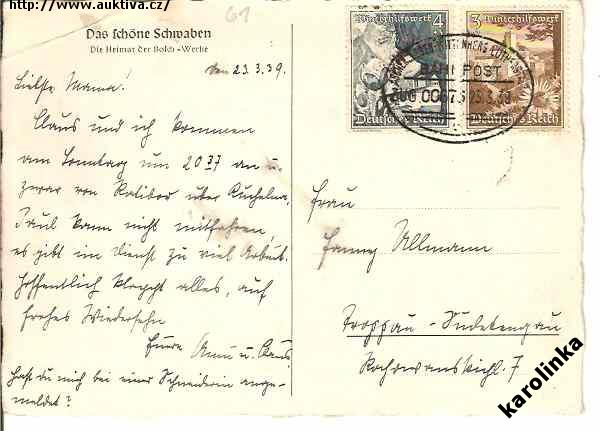 http://www.auktiva.cz/
61
Das schöne Schwaben
Die Heimat der Bosch-Werke
den 23.3.39.
Liebste Mama!
Claus und ich kommen
am Sonntag um 20 37 an u.
zwar von Ratibor über Kuchelna.
Paul kann nicht mitfahren,
es gibt im Dienst zu viel Arbeit.
Hoffentlich klappt alles, auf
frohes Wiedersehn
Eure u. Claus.
Hast du mich bei einer Schneiderin ange-
meldet?
Winterhilfswerk 4
Deutsches Reich
3 Winterhilfswerk
Deutsches Reich
BAHNPOST
ZUG 00673 23.3.39
Frau
Fanny Ullmann
Troppau - Sudetengau
7
karolinka